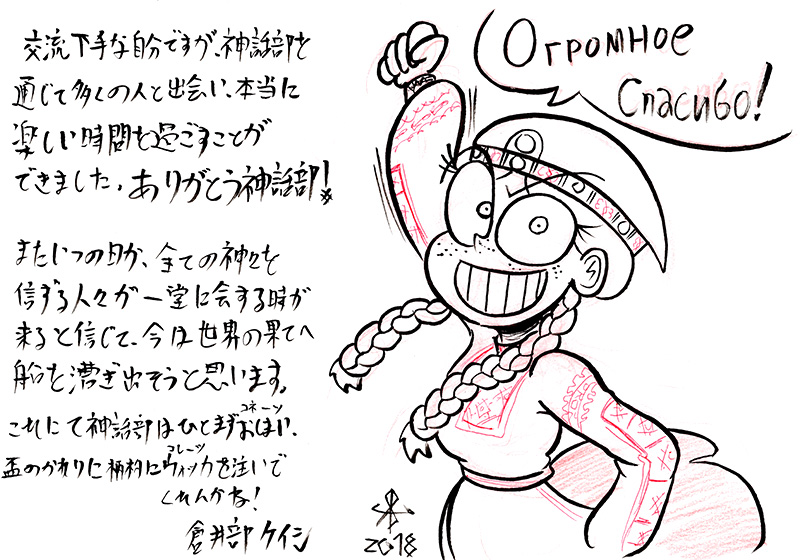 交流下手な自分ですが、神話部を
通じて多くの人と出会い、本当に
楽しい時間を過ごすことが
できました。ありがとう神話部！
またいつの日か、全ての神々を
信ずる人々が一堂に会する時が
来ると信じて、今は世界の果てへ
船を漕ぎ出そうと思います。
コネーツ
これにて神話部はひとまずおはい、
コレーツ
盃のかわりに柄杓にウィッカを注いで
くれんかね！
倉井部ケイシ
Огромное
Спасибо!
2018